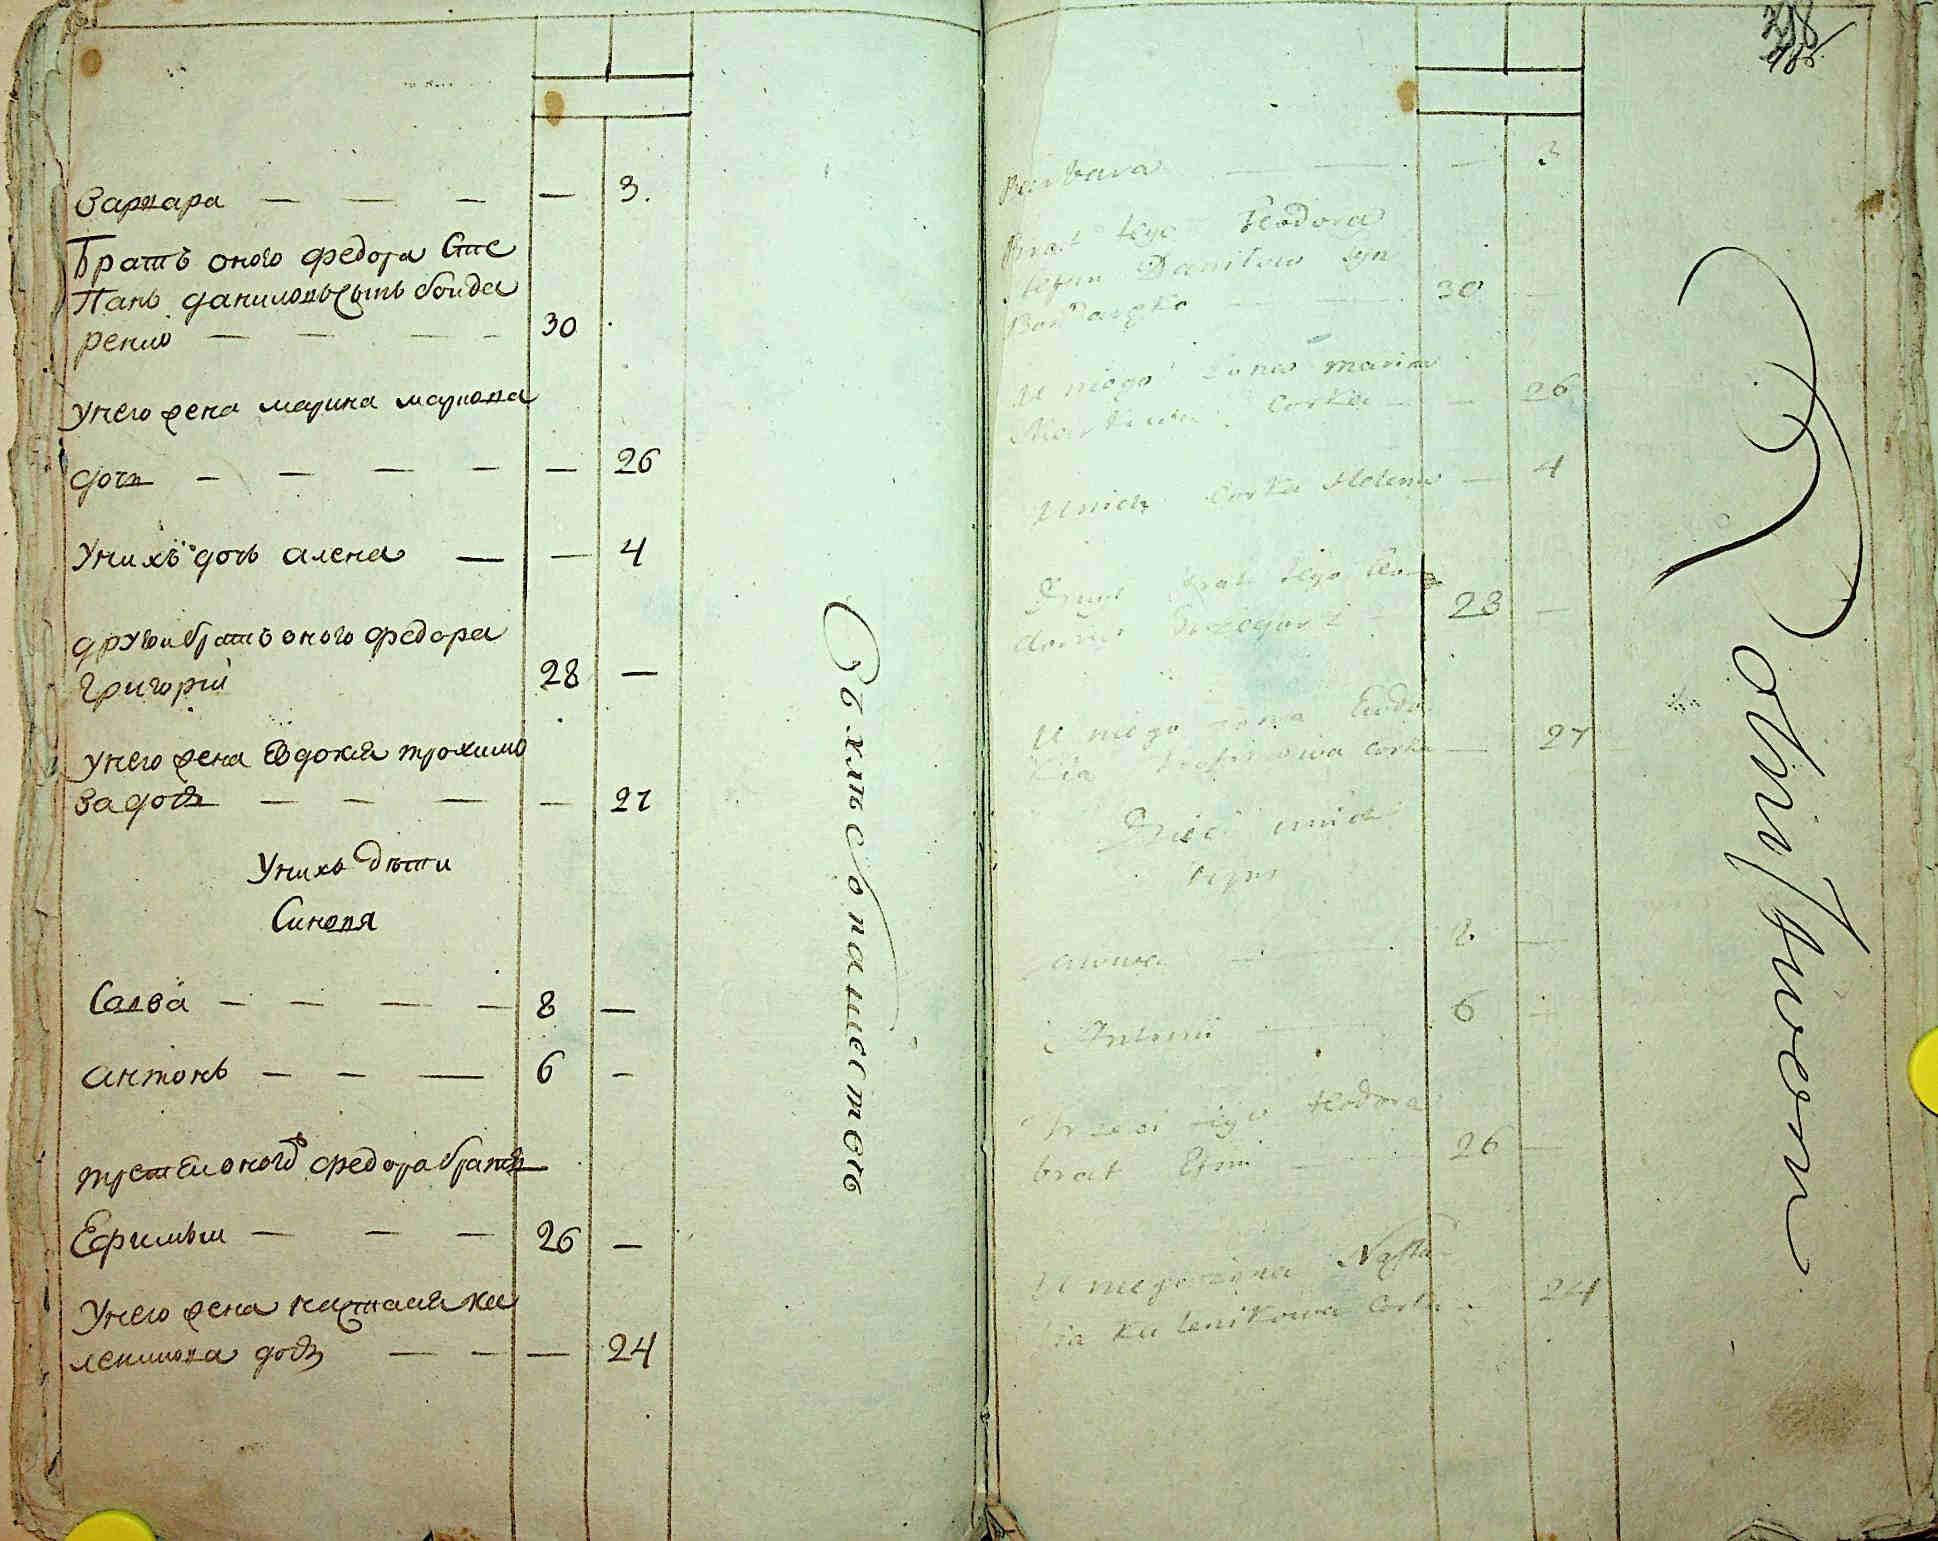 Варвара — — — — 3.
Братъ оного Федора Сте
панъ Даниловъ сынъ бонда
ренко — — — — 30
У него жена Марина Маркова
дочь — — — — — 26
У нихъ дочь Алена — — 4
Другои братъ оного Федора
Григории 28 —
У него жена Евдокия Трохимо
ва дочь — — — — 27
У нихъ дѣти
Синовя
Савва — — — — 8 —
Антонъ — — — 6 —
Третеи оного Федора братъ
Ефимъ — — — 26 —
У него жена Настася Ка
леникова дочь — — — 24
Barbara — — 3
Brat tego Teodora
Stefan Daniłow syn
Bondarenko — — 30 —
U niego żona Marina
Markowa Corka — — 26
U nich Corka Helena — 4
Drugi brat tego Teo-
dora Grzegorz — 28 —
U niego żona Eudo-
kia Trofimowa Corka — 27
Dzieci u nich
Sawwa — — 8 —
Antoni — 6 —
Trzeci tego Teodora
brat Efim — 26 —
U niego żona Nasta-
sia Kalenikowa Corka — 24